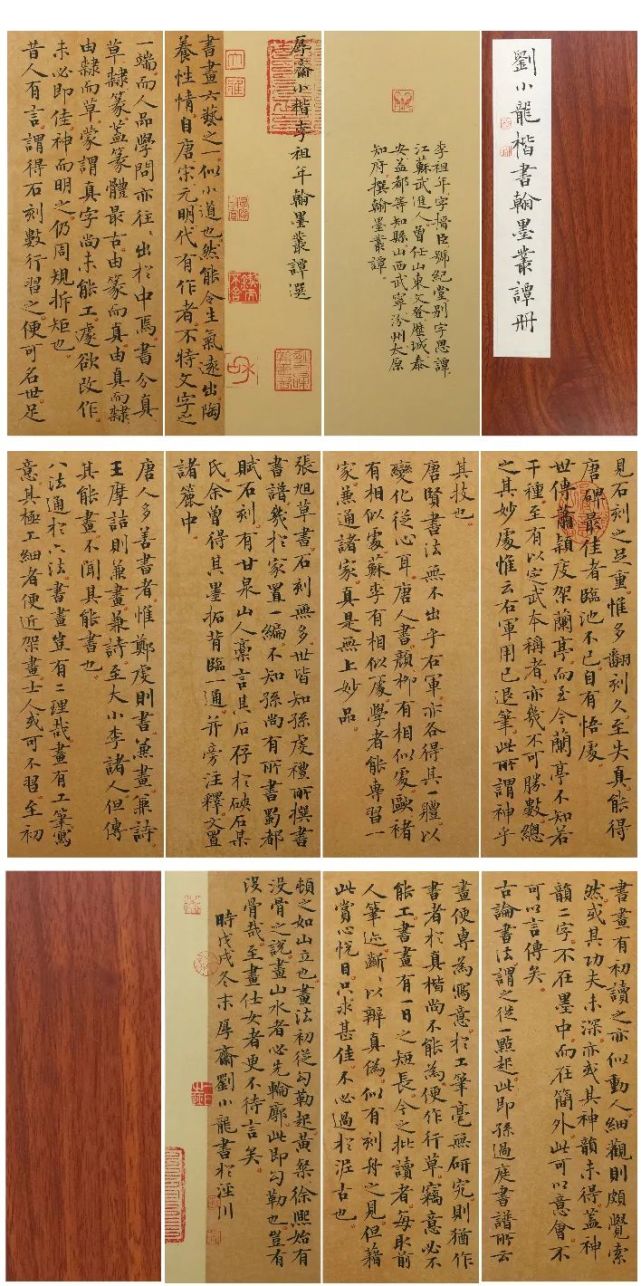 劉小龍楷書翰墨叢譚册
李祖年字搢臣號紀堂别字思譚
江蘇武進人曾任山東文登歷城泰
安益都等知縣山西武寧汾州太原
知府撰翰墨叢譚
厚齋小楷李祖年翰墨叢譚選
書畫六藝之一似小道也然能令生氣遠出陶
養性情自唐宋元明代有作者不特文字之
一端而人品學問亦往々出於中焉書分真
草隸篆蓋篆體最古由篆而真由真而隸
由隸而草蒙謂真字尚未能工處欲改作
未必即佳神而明之仍周規折矩也
昔人有言謂得石刻數行習之便可名世足
見石刻之足重惟多翻刻久至失真能得
唐碑最佳者臨池不已自有悟處
世傳蕭穎度架蘭亭而至今蘭亭不知若
干種至有以定武本稱者亦幾不可勝數總
之其妙處惟云右軍用已退筆此所謂神乎
其技也
唐賢書法無不出乎右軍亦各得其一體以
變化從心耳唐人書顏柳有相似處歐褚
有相似處蘇李有相似處學者能專習一
家兼通諸家真是無上妙品
張旭草書石刻無多世皆知孫虔禮所撰書
書譜幾於家置一編不知孫尚有所書蜀都
賦石刻有甘泉山人稟言其石存於硤石某
氏余曾得其墨拓背臨一通并旁注釋文置
諸篋中
唐人多善書者惟鄭虔則書兼畫兼詩
王摩詰則兼畫兼詩至大小李諸人但傳
其能畫不聞其能書也
八法通於六法書畫豈有二理哉畫有工筆寫
意其極工細者便近架畫士人或可不習至初
書畫有初讀之亦似動人細觀則頗覺索
然或其功夫未深亦或其神韻未得蓋神
韻二字不在墨中而在簡外此可以意會不
可以言傳矣
古論書法謂之從一點起此即孫過庭書譜所云
畫便專為寫意於工筆毫無研究則猶作
書者於真楷尚不能為便作行草竊意必不
能工書畫有一日之短長今之批讀者每取前
人筆迹斷々以辨真偽似有刻舟之見但藉
此賞心悦目只求甚佳不必過於泥古也
頓之如山立也畫法初從勾勒起黄筌徐熙始有
没骨之説畫山水者必先輪廓此即勾勒也豈有
没骨哉至畫仕女者更不待言矣
時戊戌冬末厚齋劉小龍書於涇川